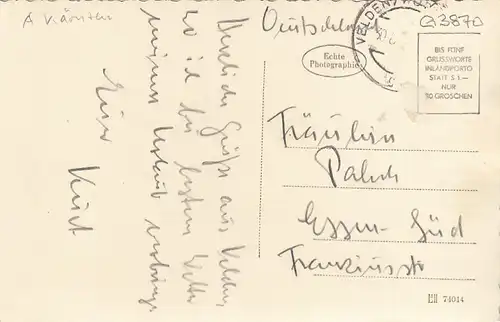 A Kärnten
Deutschland
G3870
VELDEN
BIS FÜNF
GRUSSWORTE
INLANDPORTO
STATT S 1.—
NUR
30 GROSCHEN
Echte
Photographie
Herzliche Grüße aus Velden,
wo ich bei bestem Wetter
meinen Urlaub verbringe
Euer
Kurt
Fräulein
Essen-Süd
Franziusstr
74014